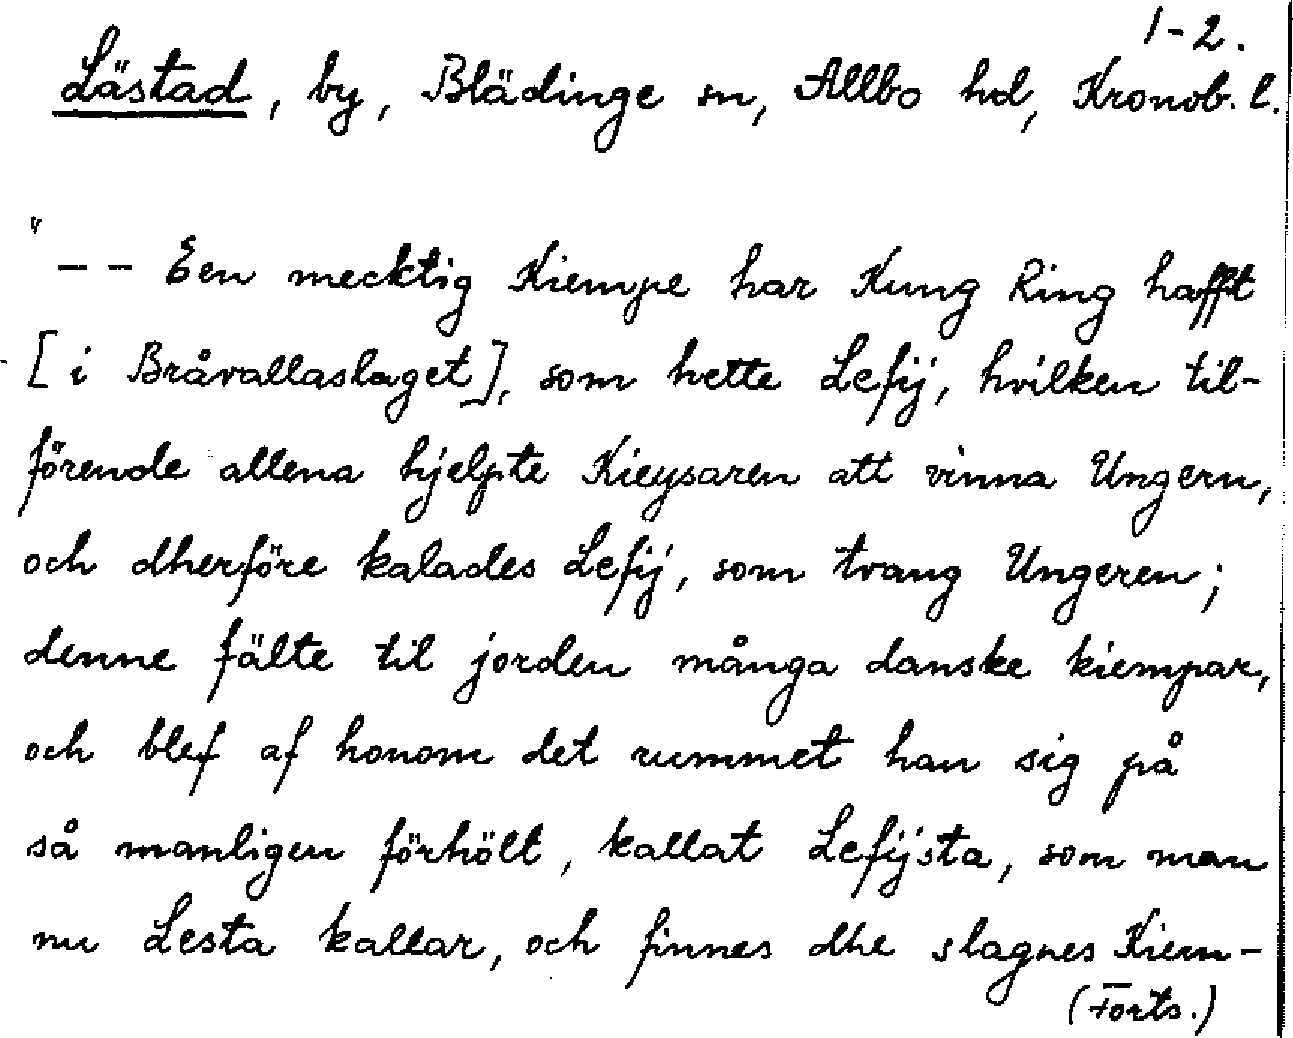 1-2.
Lästad, by, Blädinge sn, Allbo hd, Kronob. l.
"-- Een mecktig Kiempe har Kung Ring hafft
[i Bråvallaslaget], som hette Lefij, hvilken til-
förende allena hjelpte Kieysaren att vinna Ungern,
och dherföre kalades Lefij, som tvang Ungeren;
denne fälte til jorden många danske kiempar,
och blef af honom det rummet han sig på
så manligen förhölt, kallat Lefijsta, som man
nu Lesta kallar, och finnes dhe slagnes Kiem-
(Forts.)